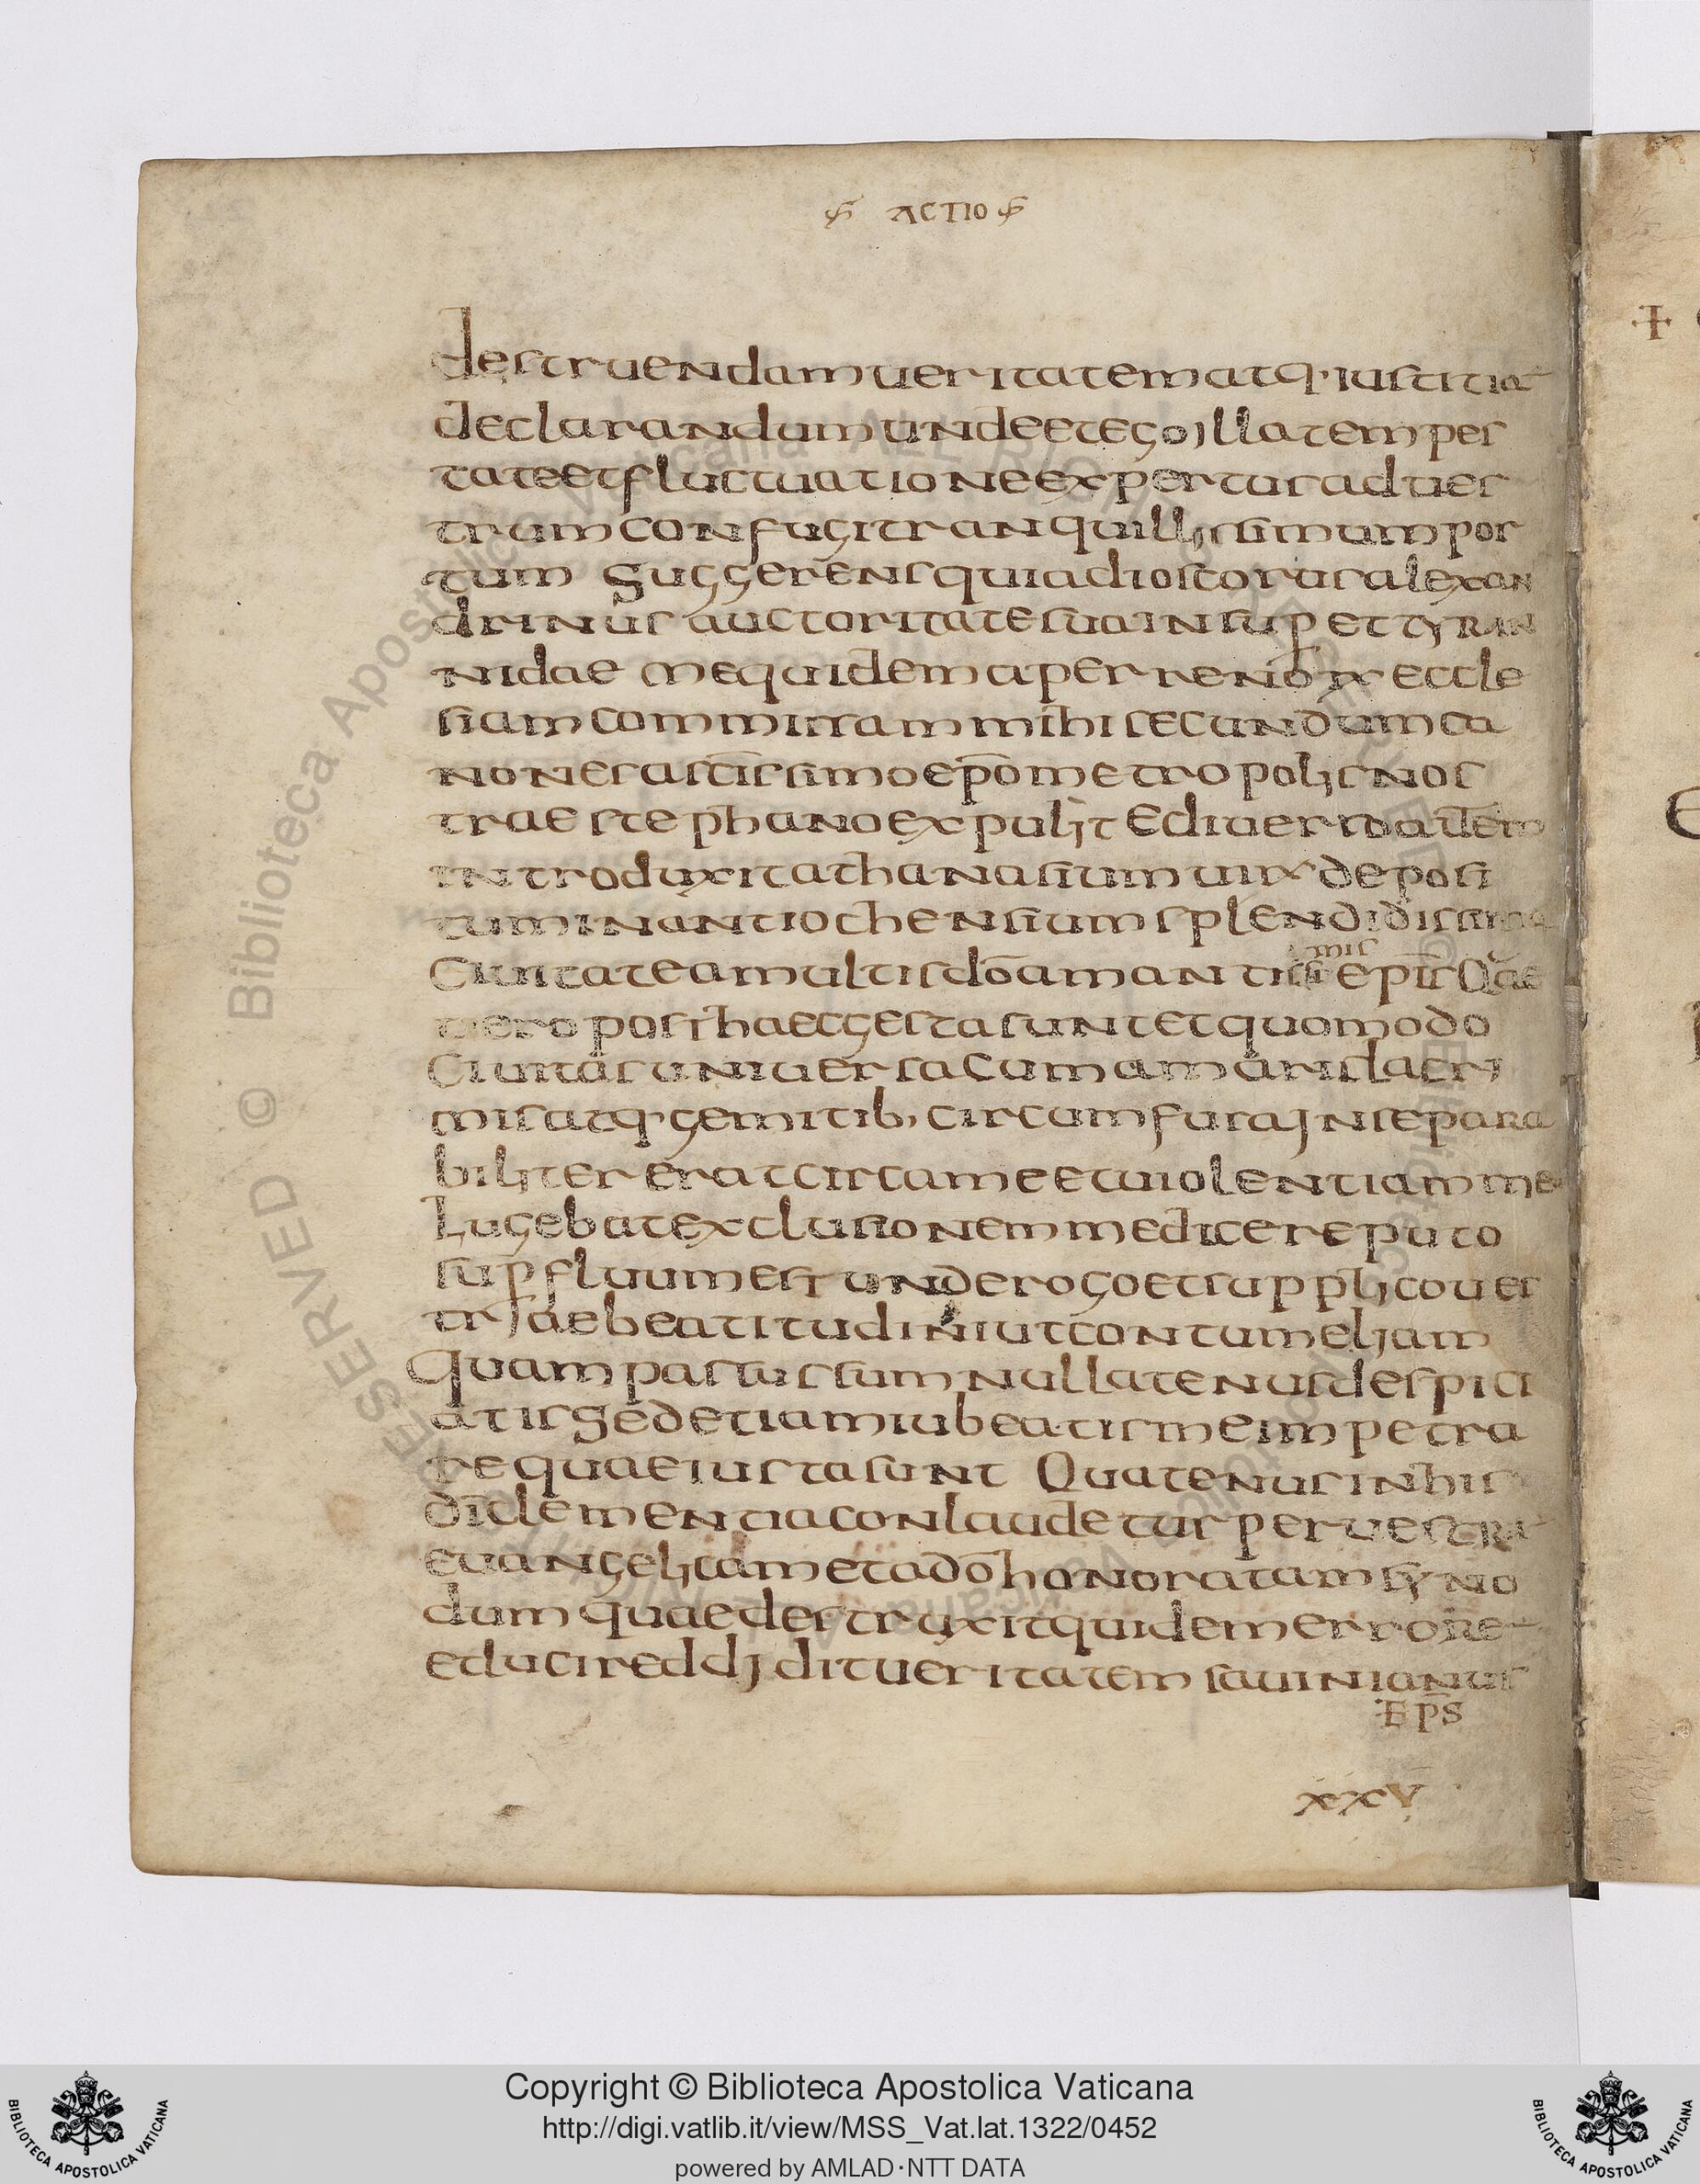 ACTIO
destruendam ueritatem atq· iustitiā
declarandum unde et ego illa tempes
tate et fluctuatione expertus ad ues
trum confugi tranquillissimum por
tum Suggerens quia dioscorus alexan
drinus auctoritate sua insup et tyran
nidae me quidem aperrenōrr eccle
siam commissam mihi secundum ca
nones a sc̄issimo ep̄o metropolis nos
trae stephano expulit Ediuerno autem
introduxit athanasium uirr deposi
tum in antiochensium splendidissima
Ciuitate a multis dō amantissi epīs Quae
mis
uero post haec gesta sunt et quomodo
Ciuitas uniuersa cum amaris lacri
mis atq· gemitib, circumfusa insepara
biliter erat circa me et uiolentiam me
Lugebat exclusionem me dicere puto
sup fluum est unde rogo et supplico ues
trae beatitudini ut contumeliam
Quam passus sum nullatenus despici
atis Sed etiam iubeatis me impetra
re quae iusta sunt Quatenus in his
dī clementia conlaudetur per uestrā
euangelicam et a dō honoratam syno
dum quae destruxit quidem errorē
educi reddidit ueritatem sauinianus
Ep̄s
xxv
Biblioteca Apostolica Vaticana
Copyright © Biblioteca Apostolica Vaticana
http://digi.vatlib.it/view/MSS_Vat.lat.1322/0452
powered by AMLAD·NTT DATA
BIBLIOTECA APOSTOLICA VATICANA
BIBLIOTECA APOSTOLICA VATICANA